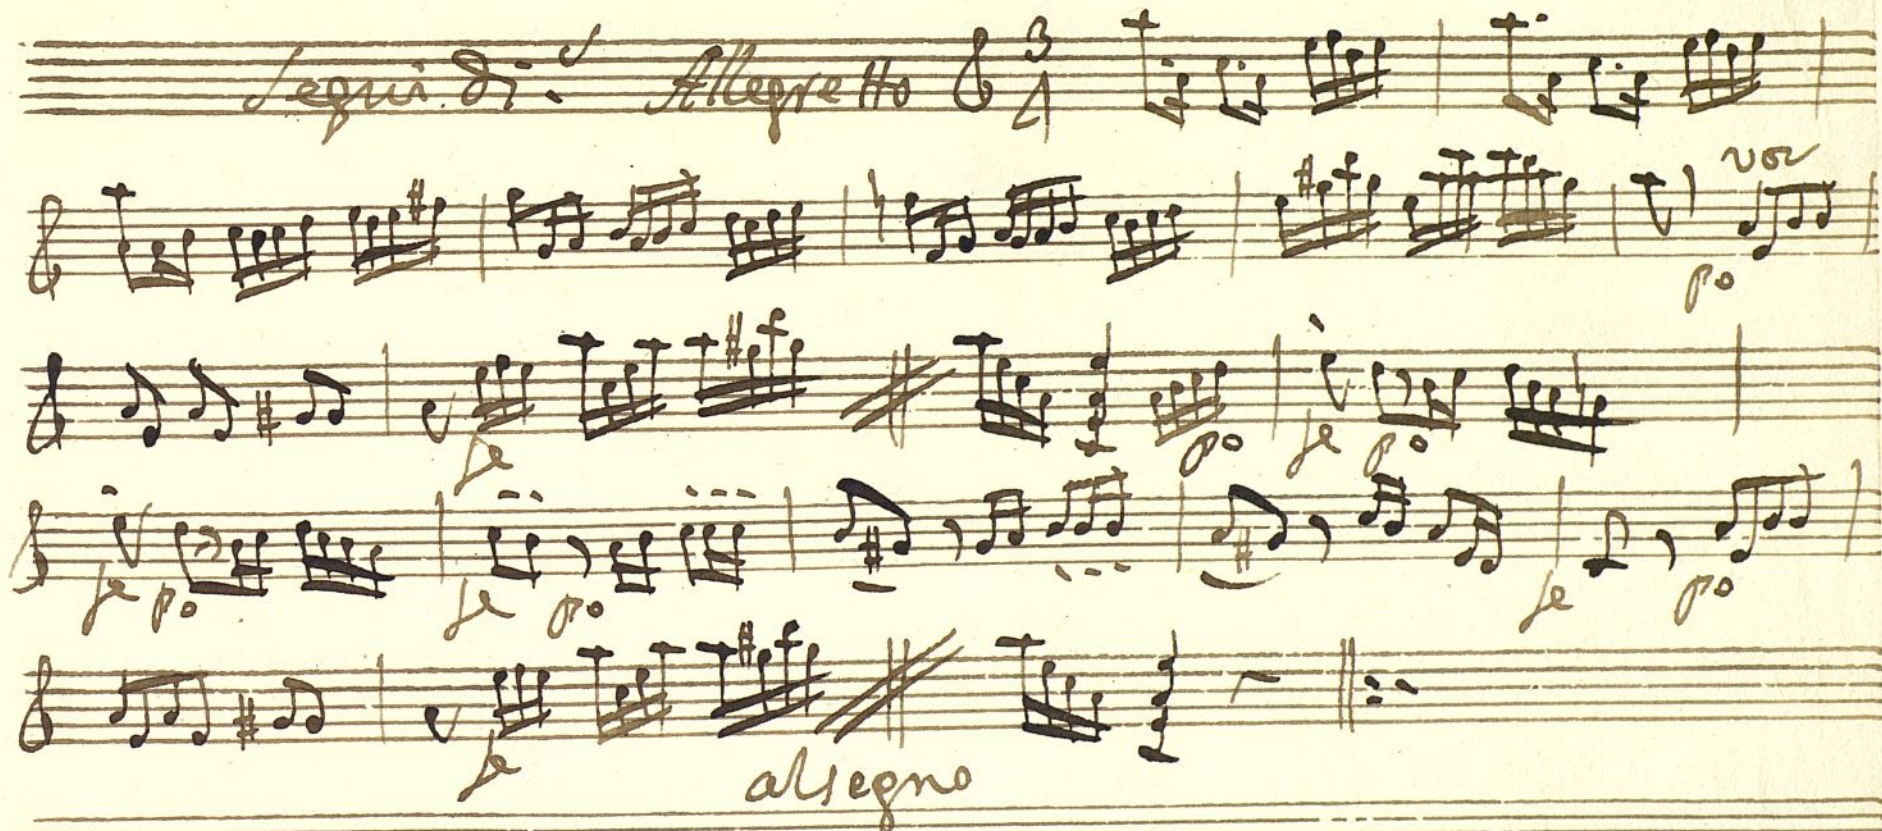 Segui di.s Allegretto 3 4
voz
po
fe po fe po
fe po fe po fe po
fe
al segno